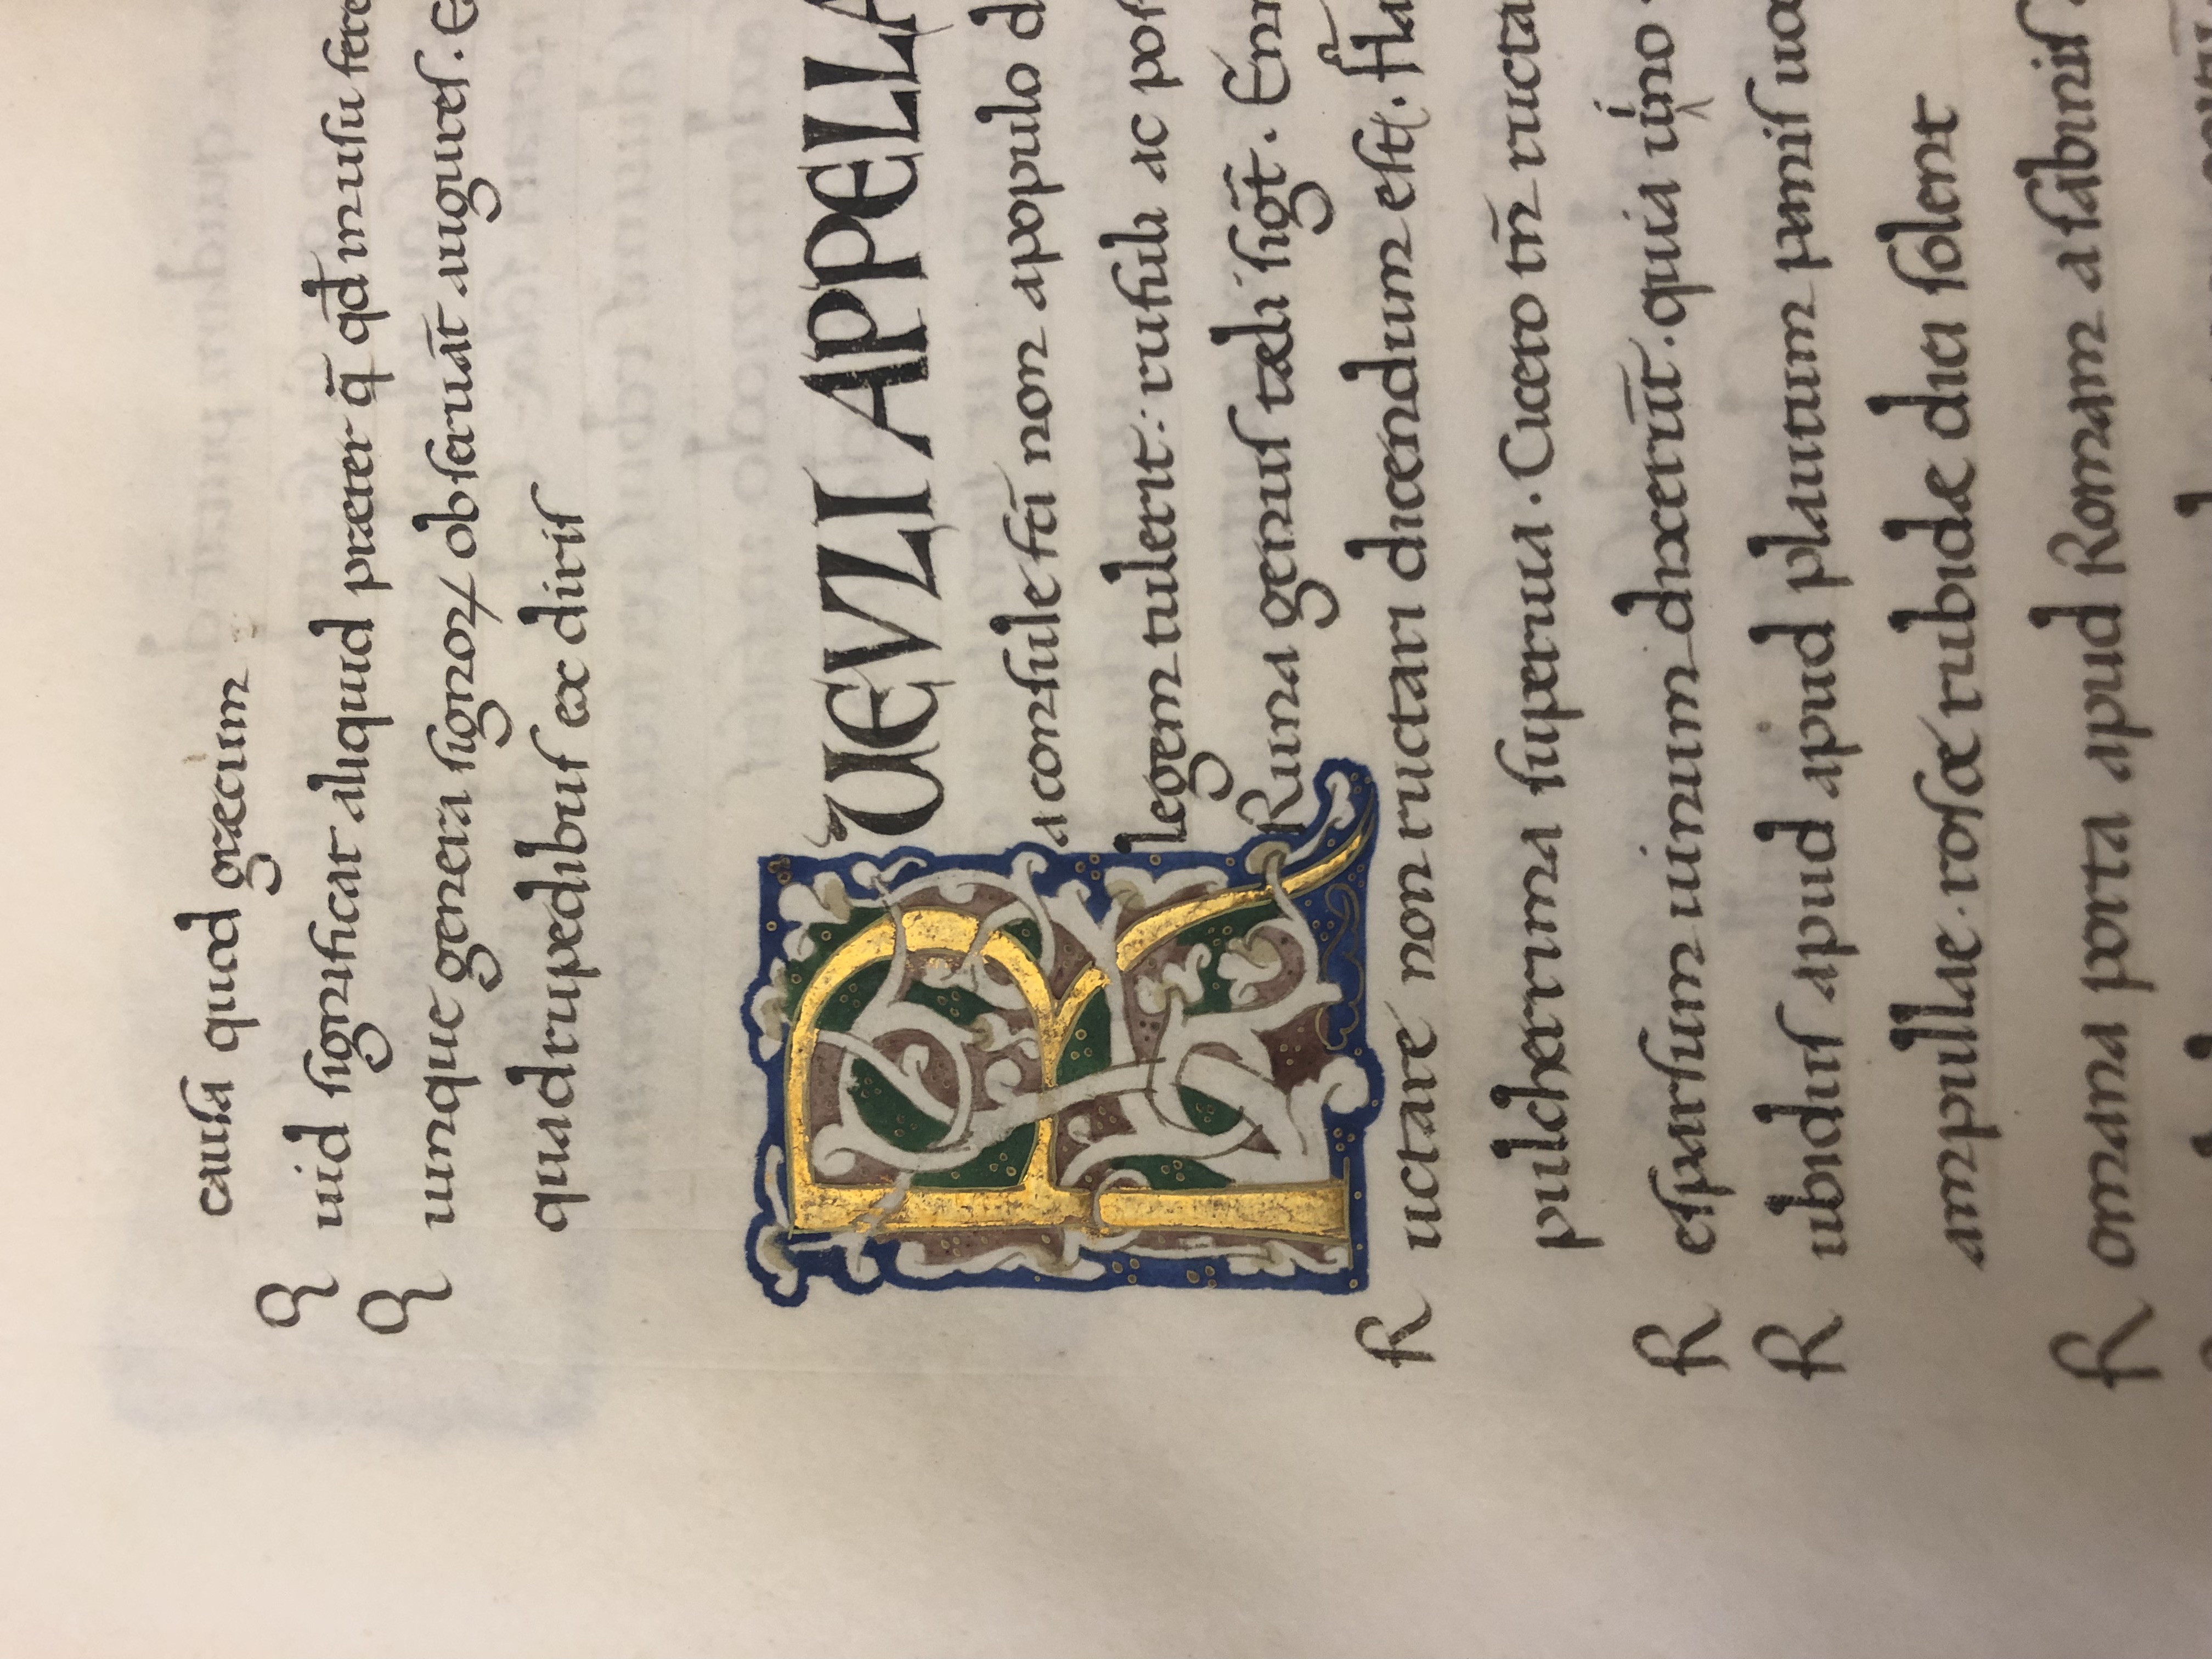 causa quod græcum
Quid significat aliquid præter q̄ qd̄ in usu fere
Quinque genera signoꝝ obseruāt augures. E
quadrupedibus ex diris
RUEVLI APPELLA
a consule tā non a populo d
legem tulerit: rutuli ac pos
Ruma genus tæli sigt̄. Enn
Ructare non ructari dicendum est.
pulcherrima superuia. Cicero tn̄ ructa
Resparsum uinum dixerūt. quia uino
Rubidus apud apud plautum panis uoc
ampullae rosæ rubidæ dici solent
Romana porta apud Romam a sabinis